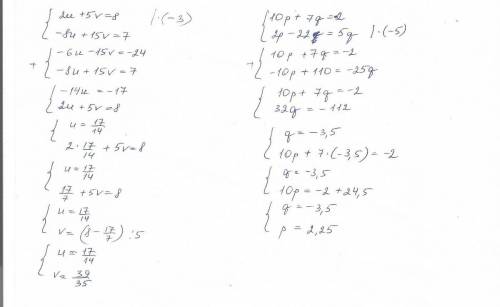 2u + 5v = 8 | · (-3)
-8u + 15v = 7
+ -6u - 15v = -24
-8u + 15v = 7
-14u = -17
2u + 5v = 8
u = 17/14
2 · 17/14 + 5v = 8
u = 17/14
17/7 + 5v = 8
u = 17/14
v = (8 - 17/7) : 5
u = 17/14
v = 39/35
10p + 7q = -2
2p - 22 = 5q | · (-5)
+ 10p + 7q = -2
-10p + 110 = -25q
10p + 7q = -2
32q = -112
q = -3,5
10p + 7 · (-3,5) = -2
q = -3,5
10p = -2 + 24,5
q = -3,5
p = 2,25